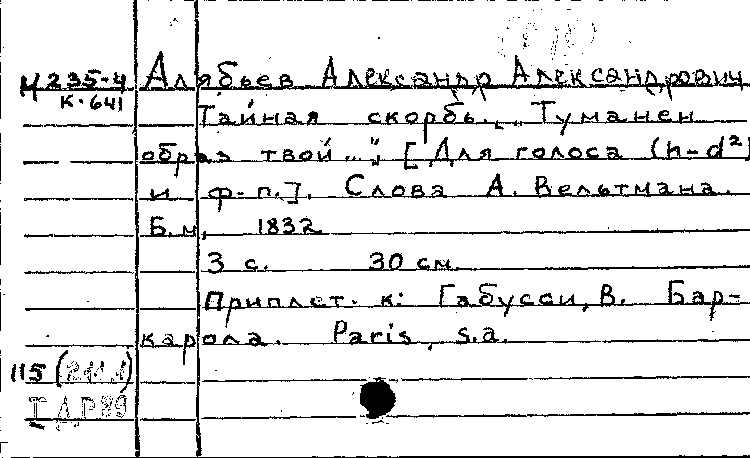 М 235-4 Алябьев Александр Александрович
к-641 Тайная скорбь. „Туманен
образ твой..." [Для голоса (h-d²)
и ф-п.]. Слова А. Вельтмана.
Б.м., 1832
3 с. 30 см.
Приплет. к: Габусси, В. Бар-
карола. Paris, s.a.
115